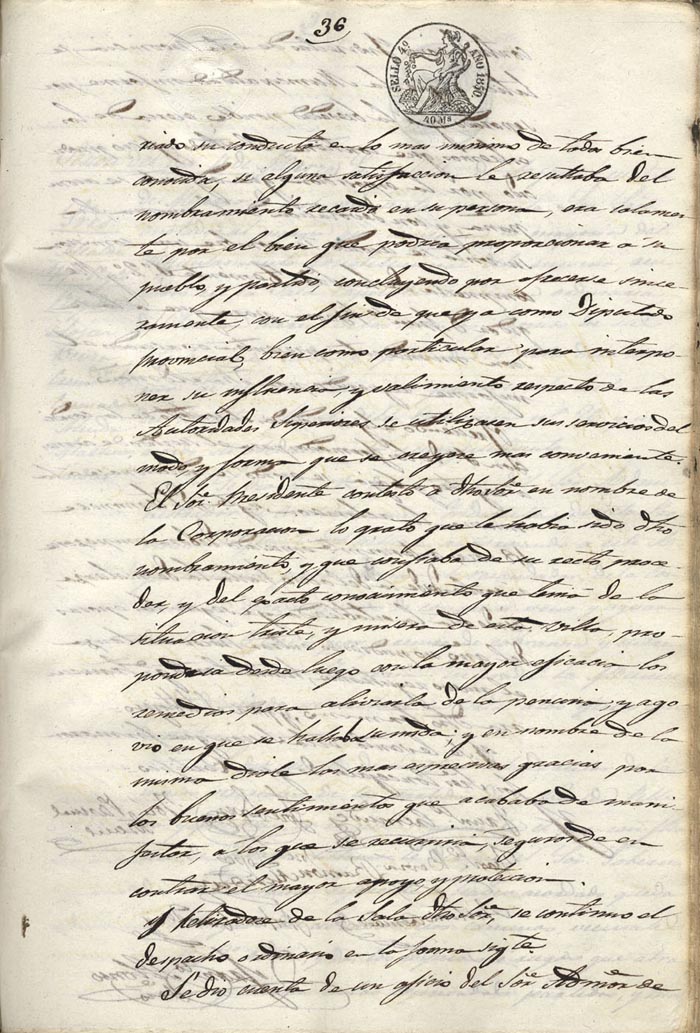 36
SELLO 4º AÑO 1850.
40 Ms
riado su conducta en lo mas minimo de todos bien
conocida, si alguna satisfaccion le resultaba del
nombramiento recaido en su persona, era solamen
te por el bien que podria proporcionar a su
pueblo, y partido, concluyendo por ofrecerse since-
ramente, con el fin de que ya como Diputado
Provincial, bien como particular para interpo-
ner su influencia y valimiento respecto de las
Autoridades Superiores se utilizasen sus servicios del
modo, y forma que se creyere mas conveniente.
El Sor. Presidente contestó a dho Sor. en nombre de
la Corporacion lo grato que le habia sido dho
nombramiento, y que confiaba de su recto proce-
der, y del exacto conocimiento que tenia de la
situacion triste, y misera de esta villa, pro-
pondria desde luego con la mayor eficacia los
remedios para alibiarla de la penuria, y ago
vio en que se hallaba sumida; y en nombre de la
misma diole las mas espresivas gracias por
los buenos sentimientos que acababa de mani-
festar, a los que se recurriria, seguros de en
contrar el mayor apoyo, y proteccion.
Y retirandose de la Sala dho Sor., se continuó el
despacho ordinario en la forma sigte.
Se dio cuenta de un oficio del Sor. Admor. de